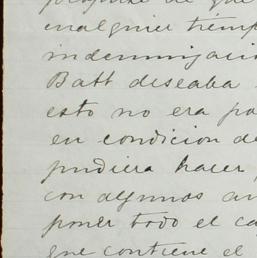 de que
cualquier tiempo
indemnizaci
Batt deseaba
esto no era po
en condicion de
pudiera hacer,
con algunos
poner todo el ca
que contiene el